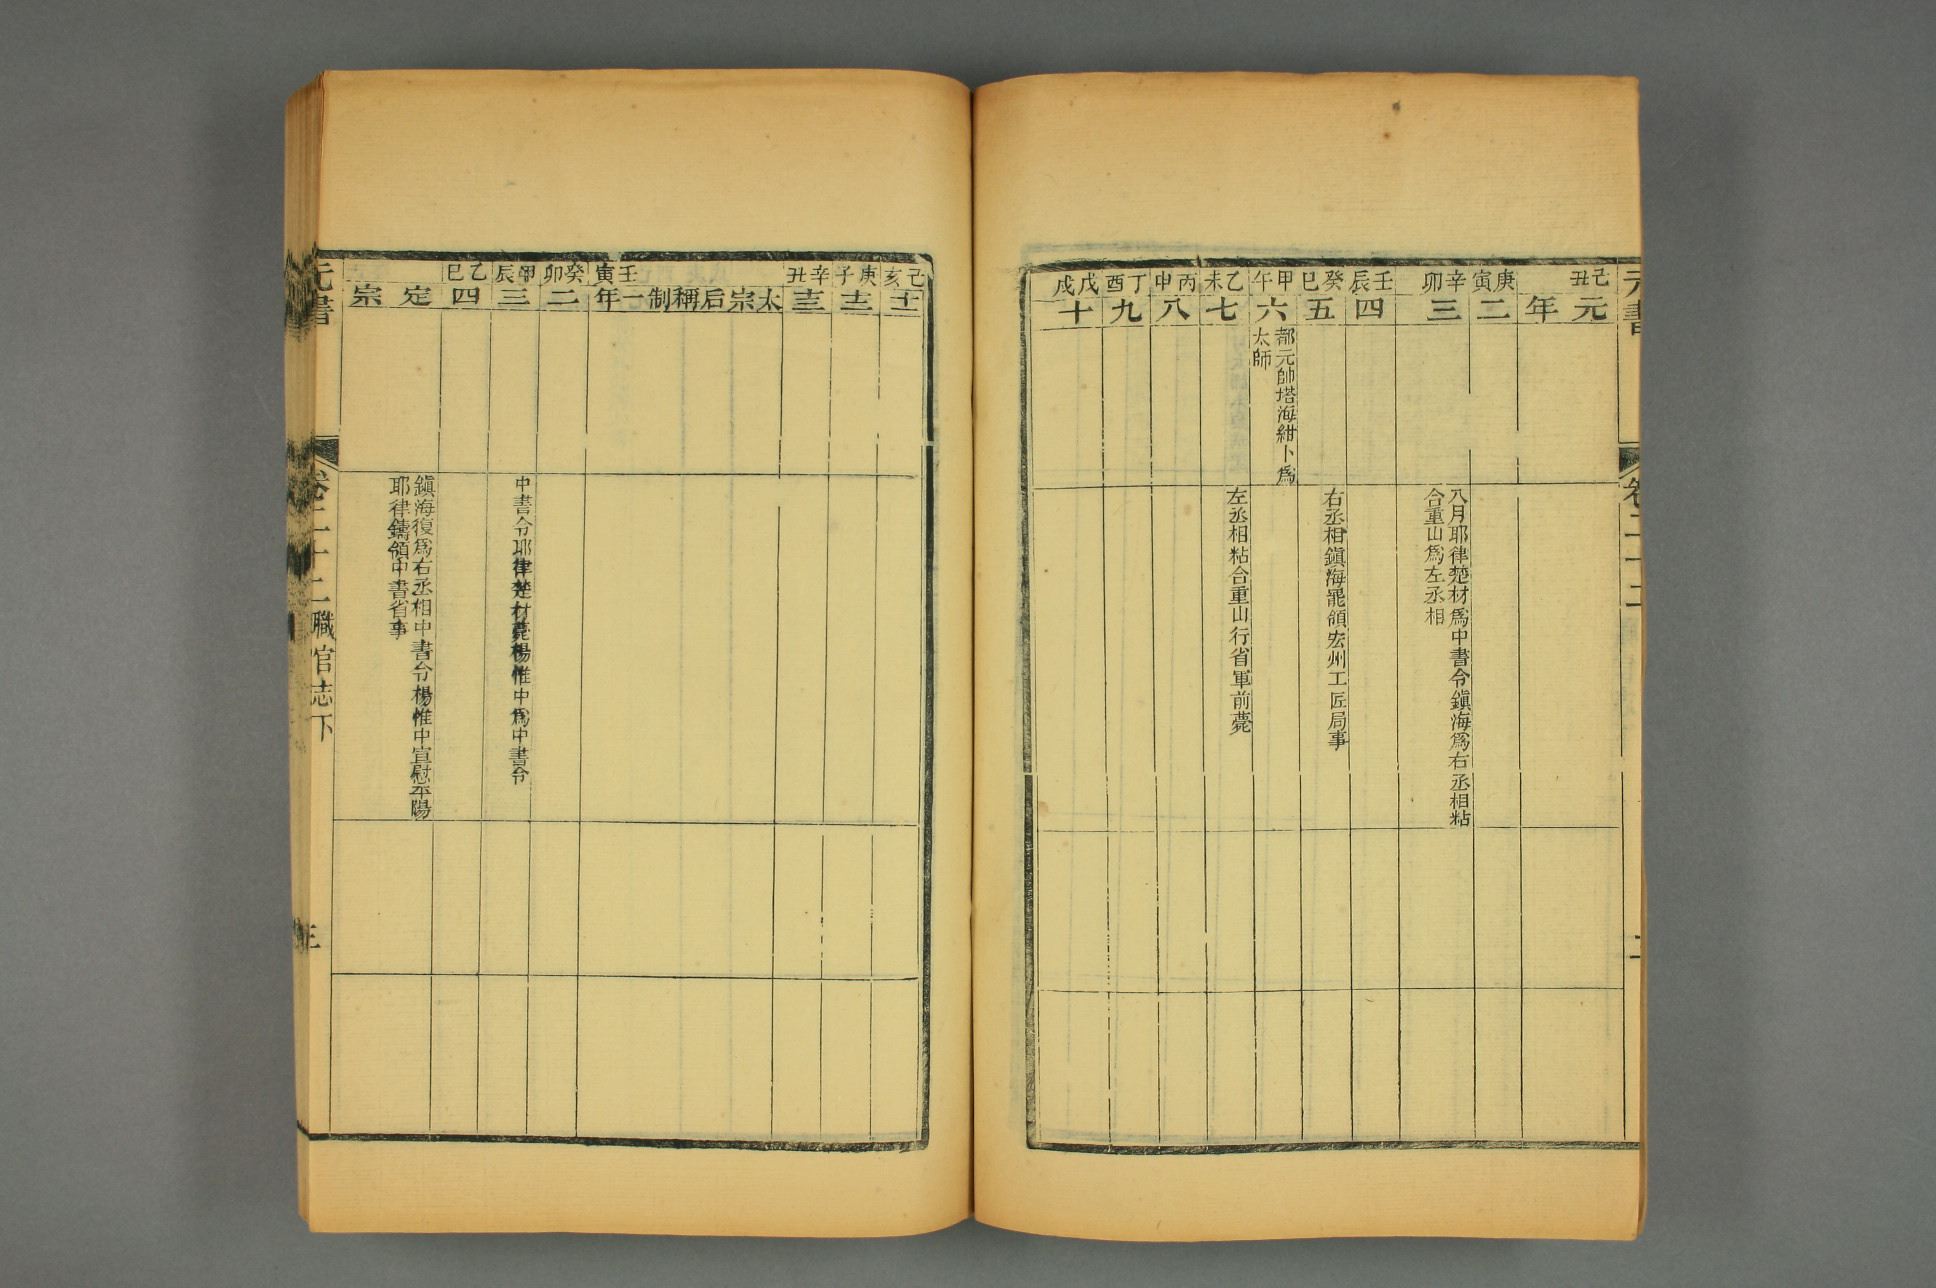 元書
卷二十二
己丑
元年
庚寅
二
辛卯
三
八月耶律楚材爲中書令鎭海爲右丞相粘
合重山爲左丞相
壬辰
四
癸巳
五
右丞相鎭海罷領宏州工匠局事
甲午
六
都元帥塔海紺卜爲
太師
乙未
七
左丞相粘合重山行省軍前薨
丙申
八
丁酉
九
戊戌
十
己亥
十一
庚子
十二
辛丑
十三
太宗后稱制
壬寅
一年
癸卯
二
甲辰
三
中書令耶律楚材薨楊惟中爲中書令
乙巳
四
定宗
鎭海復爲右丞相中書令楊惟中宣慰平陽
耶律鑄領中書省事
元書
卷二十二
職官志下
三